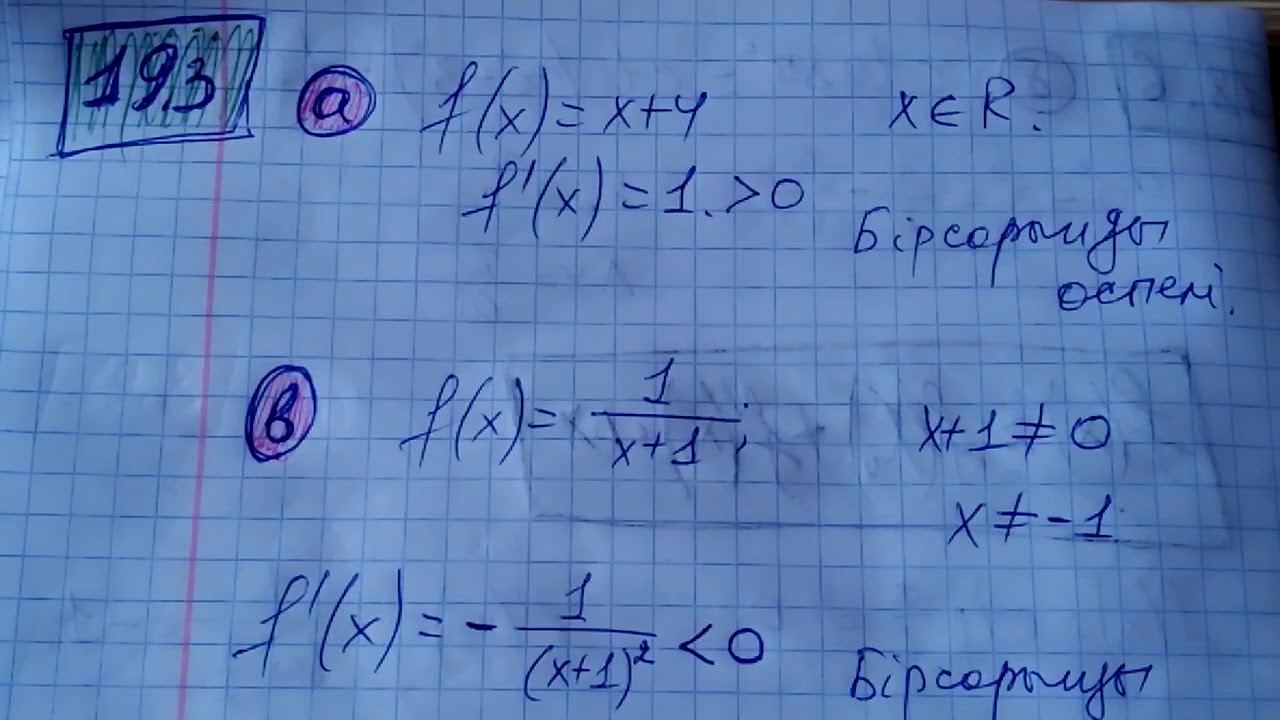 193 а f(x) = x+4 x ∈ R.
f'(x) = 1. > 0
Бірсарынды
өспелі.
в f(x) = 1/(x+1); x+1 ≠ 0
x ≠ -1
f'(x) = - 1/(x+1)² < 0
Бірсарынды